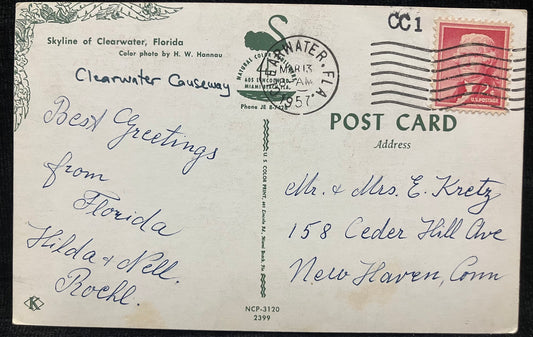 Skyline of Clearwater, Florida
Color photo by H. W. Hannau
Clearwater Causeway
Best Greetings
from
Florida
Hilda & Nell.
Roehl.
K
NATURAL COLOR
MIAMI BEACH, FLA.
Phone JE 8-
CLEARWATER, FLA
MAR 13
AM
1957
CC1
U.S. POSTAGE
POST CARD
Address
Mr. & Mrs. E. Kretz
158 Ceder Hill Ave
New Haven, Conn
U. S. COLOR PRINT, 605 Lincoln Rd., Miami Beach, Fla.
NCP-3120
2399